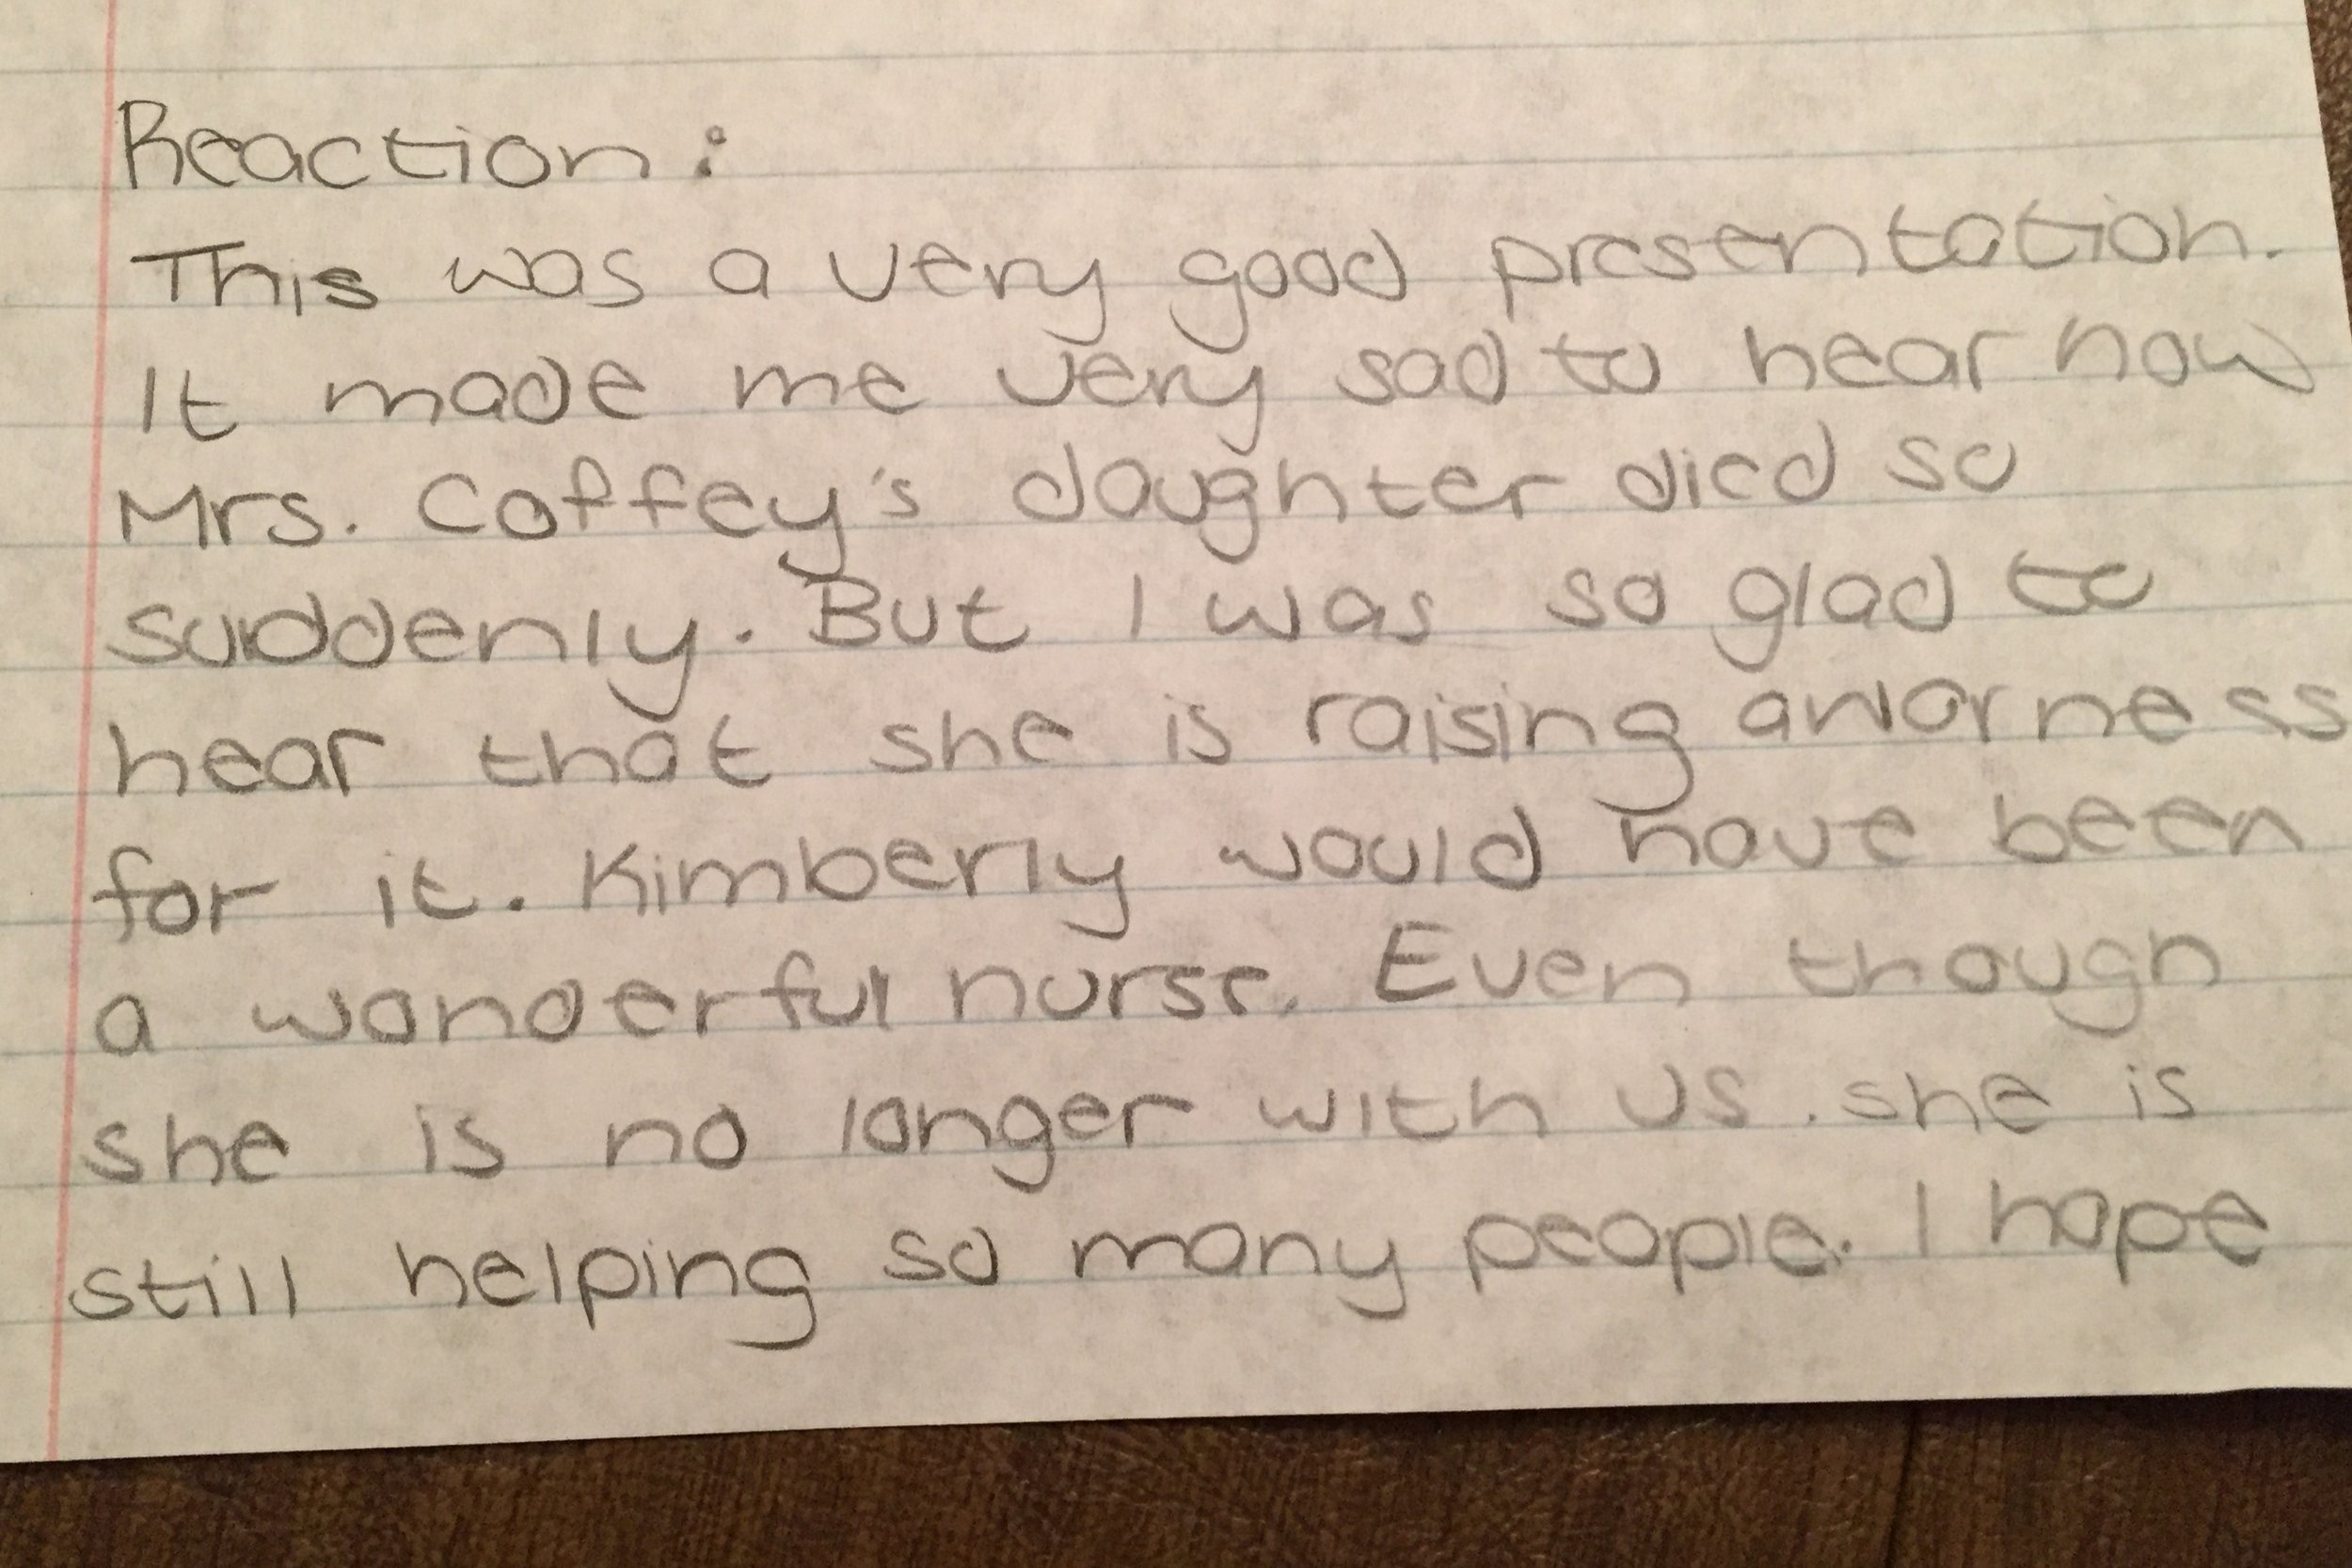 Reaction:
This was a very good presentation.
It made me very sad to hear how
Mrs. Coffey's daughter died so
suddenly. But I was so glad to
hear that she is raising awarness
for it. Kimberly would have been
a wonderful nurse. Even though
she is no longer with us. she is
still helping so many people. I hope